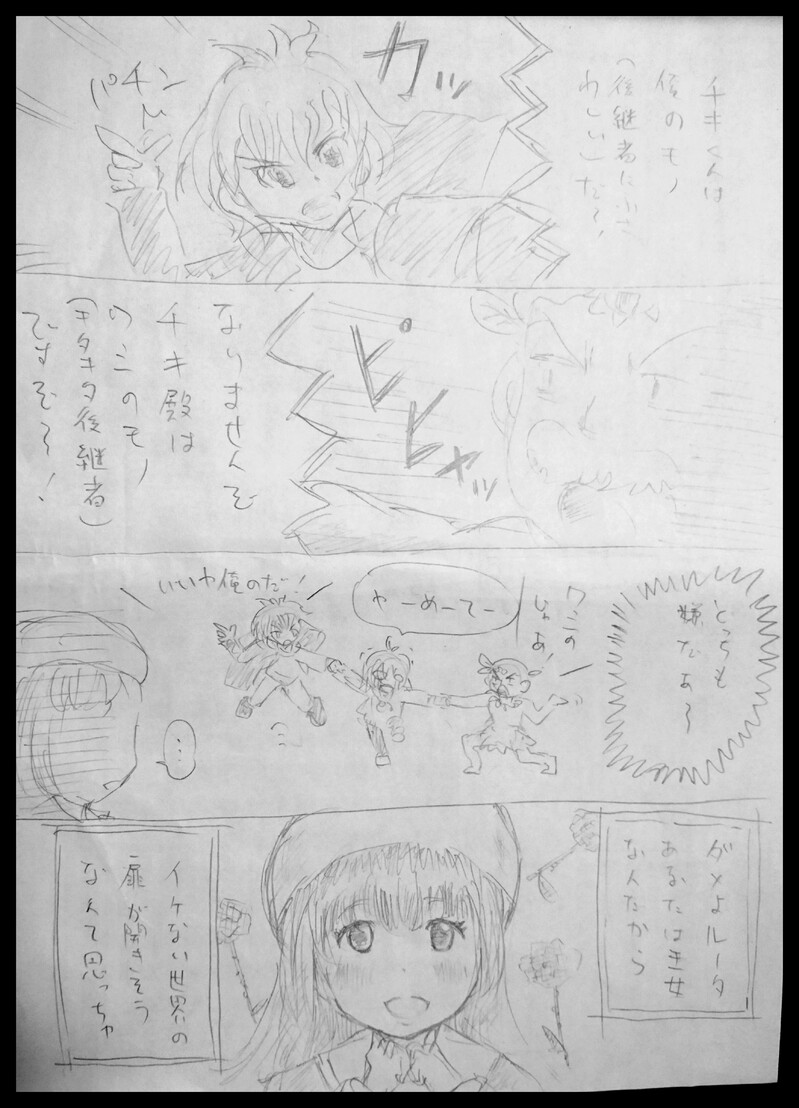 チキくんは
俺のモノ
(後継者にふさ
わしい)だ〜!
カッ
パチン
なりませんぞ
チキ殿は
ワシのモノ
(キタキタ後継者)
ですぞ〜!
ピビャッ
どっちも
嫌だぁ〜
ワシの
じゃあ!
やーめーてー
いいや俺のだ!
…
ダメよルータ
あなたは王女
なんだから
イケない世界の
扉が開きそう
なんて思っちゃ